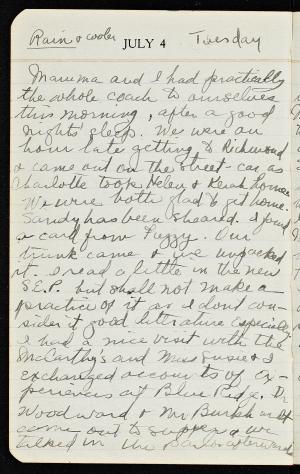 Rain & cooler
JULY 4
Tuesday
Mamma and I had practically
the whole coach to ourselves
this morning, after a good
night's sleep. We were an
hour late getting to Richmond
& came out on the street-car as
Charlotte took Helen & home.
We were both glad to get home.
Sandy has been sheared. I found
a card from Peggy. Our
trunk came & we unpacked
it. I read a little in the new
S.E.P. but shall not make a
practice of it as I dont con-
sider it good literature especially.
I had a nice visit with the
McCarthy's and Miss Susie & I
exchanged accounts of ex-
periences at Blue Ridge. Dr
Woodward & Mr
come out to supper & we
talked in the parlor afterward